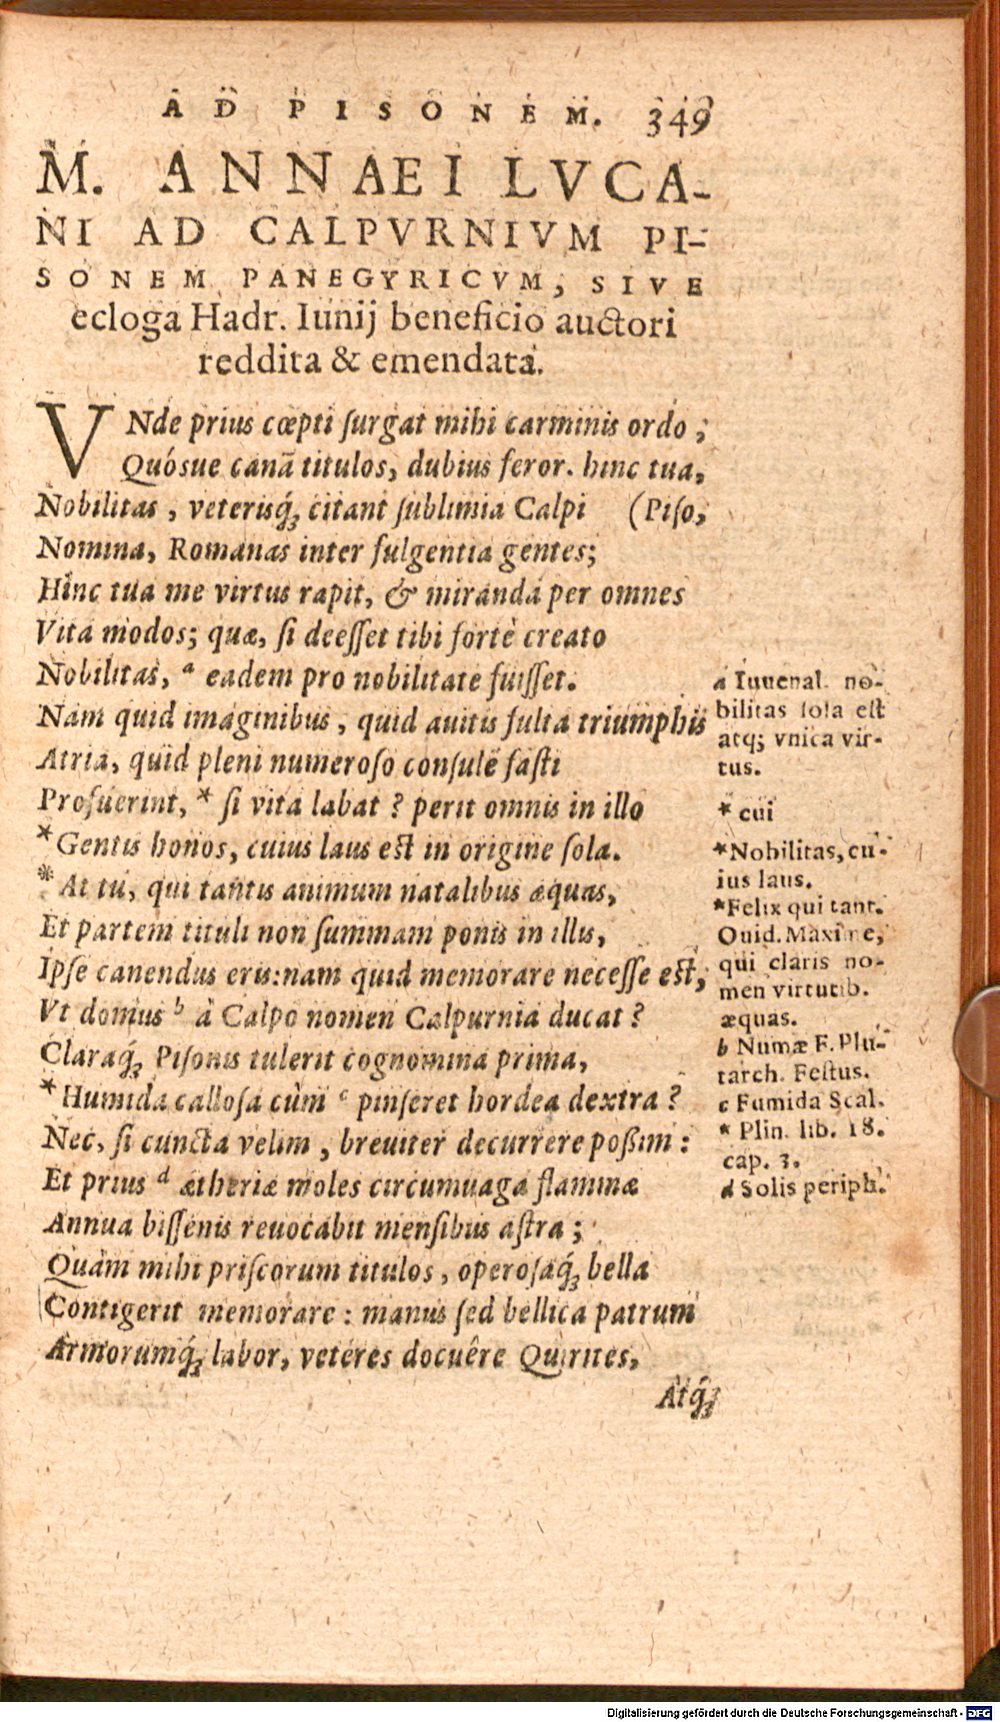 AD PISONEM. 349
M. ANNAEI LVCA-
NI AD CALPVRNIVM PI-
SONEM PANEGYRICVM, SIVE
ecloga Hadr. Iunij beneficio auctori
reddita & emendata.
VNde prius cœpti surgat mihi carminis ordo ;
Quósue canā titulos, dubius feror. hinc tua,
Nobilitas, veterisq́; citant sublimia Calpi (Piso,
Nomina, Romanas inter fulgentia gentes;
Hinc tua me virtus rapit, & miranda per omnes
Vita modos; quæ, si deesset tibi fortè creato
Nobilitas, ᵃ eadem pro nobilitate fuisset.
Nam quid imaginibus, quid auitis fulta triumphis
Atria, quid pleni numeroso consule fasti
Profuerint, * si vita labat ? perit omnis in illo
*Gentis honos, cuius laus est in origine sola.
* At tu, qui tantis animum natalibus æquas,
Et partem tituli non summam ponis in illis,
Ipse canendus eris: nam quid memorare necesse est,
Vt domus ᵇ à Calpo nomen Calpurnia ducat ?
Claraq́; Pisonis tulerit cognomina prima,
*Humida callosa cùm ᶜ pinseret hordea dextra ?
Nec, si cuncta velim, breuiter decurrere poßim :
Et prius ᵈ ætheriæ moles circumuaga flammæ
Annua bissenis reuocabit mensibus astra ;
Quàm mihi priscorum titulos, operosaq́; bella
Contigerit memorare : manus sed bellica patrum
Armorumq́; labor, veteres docuêre Quirites,
Atq́;
a Iuuenal. no-
bilitas sola est
atq; vnica vir-
tus.
* cui
*Nobilitas, cu-
ius laus.
*Felix qui tant.
Ouid. Maxime,
qui claris no-
men virtutib.
æquas.
b Numæ F. Plu-
tarch. Festus.
c Fumida Scal.
* Plin. lib. 18.
cap. 3.
d Solis periph.
Digitalisierung gefördert durch die Deutsche Forschungsgemeinschaft - DFG